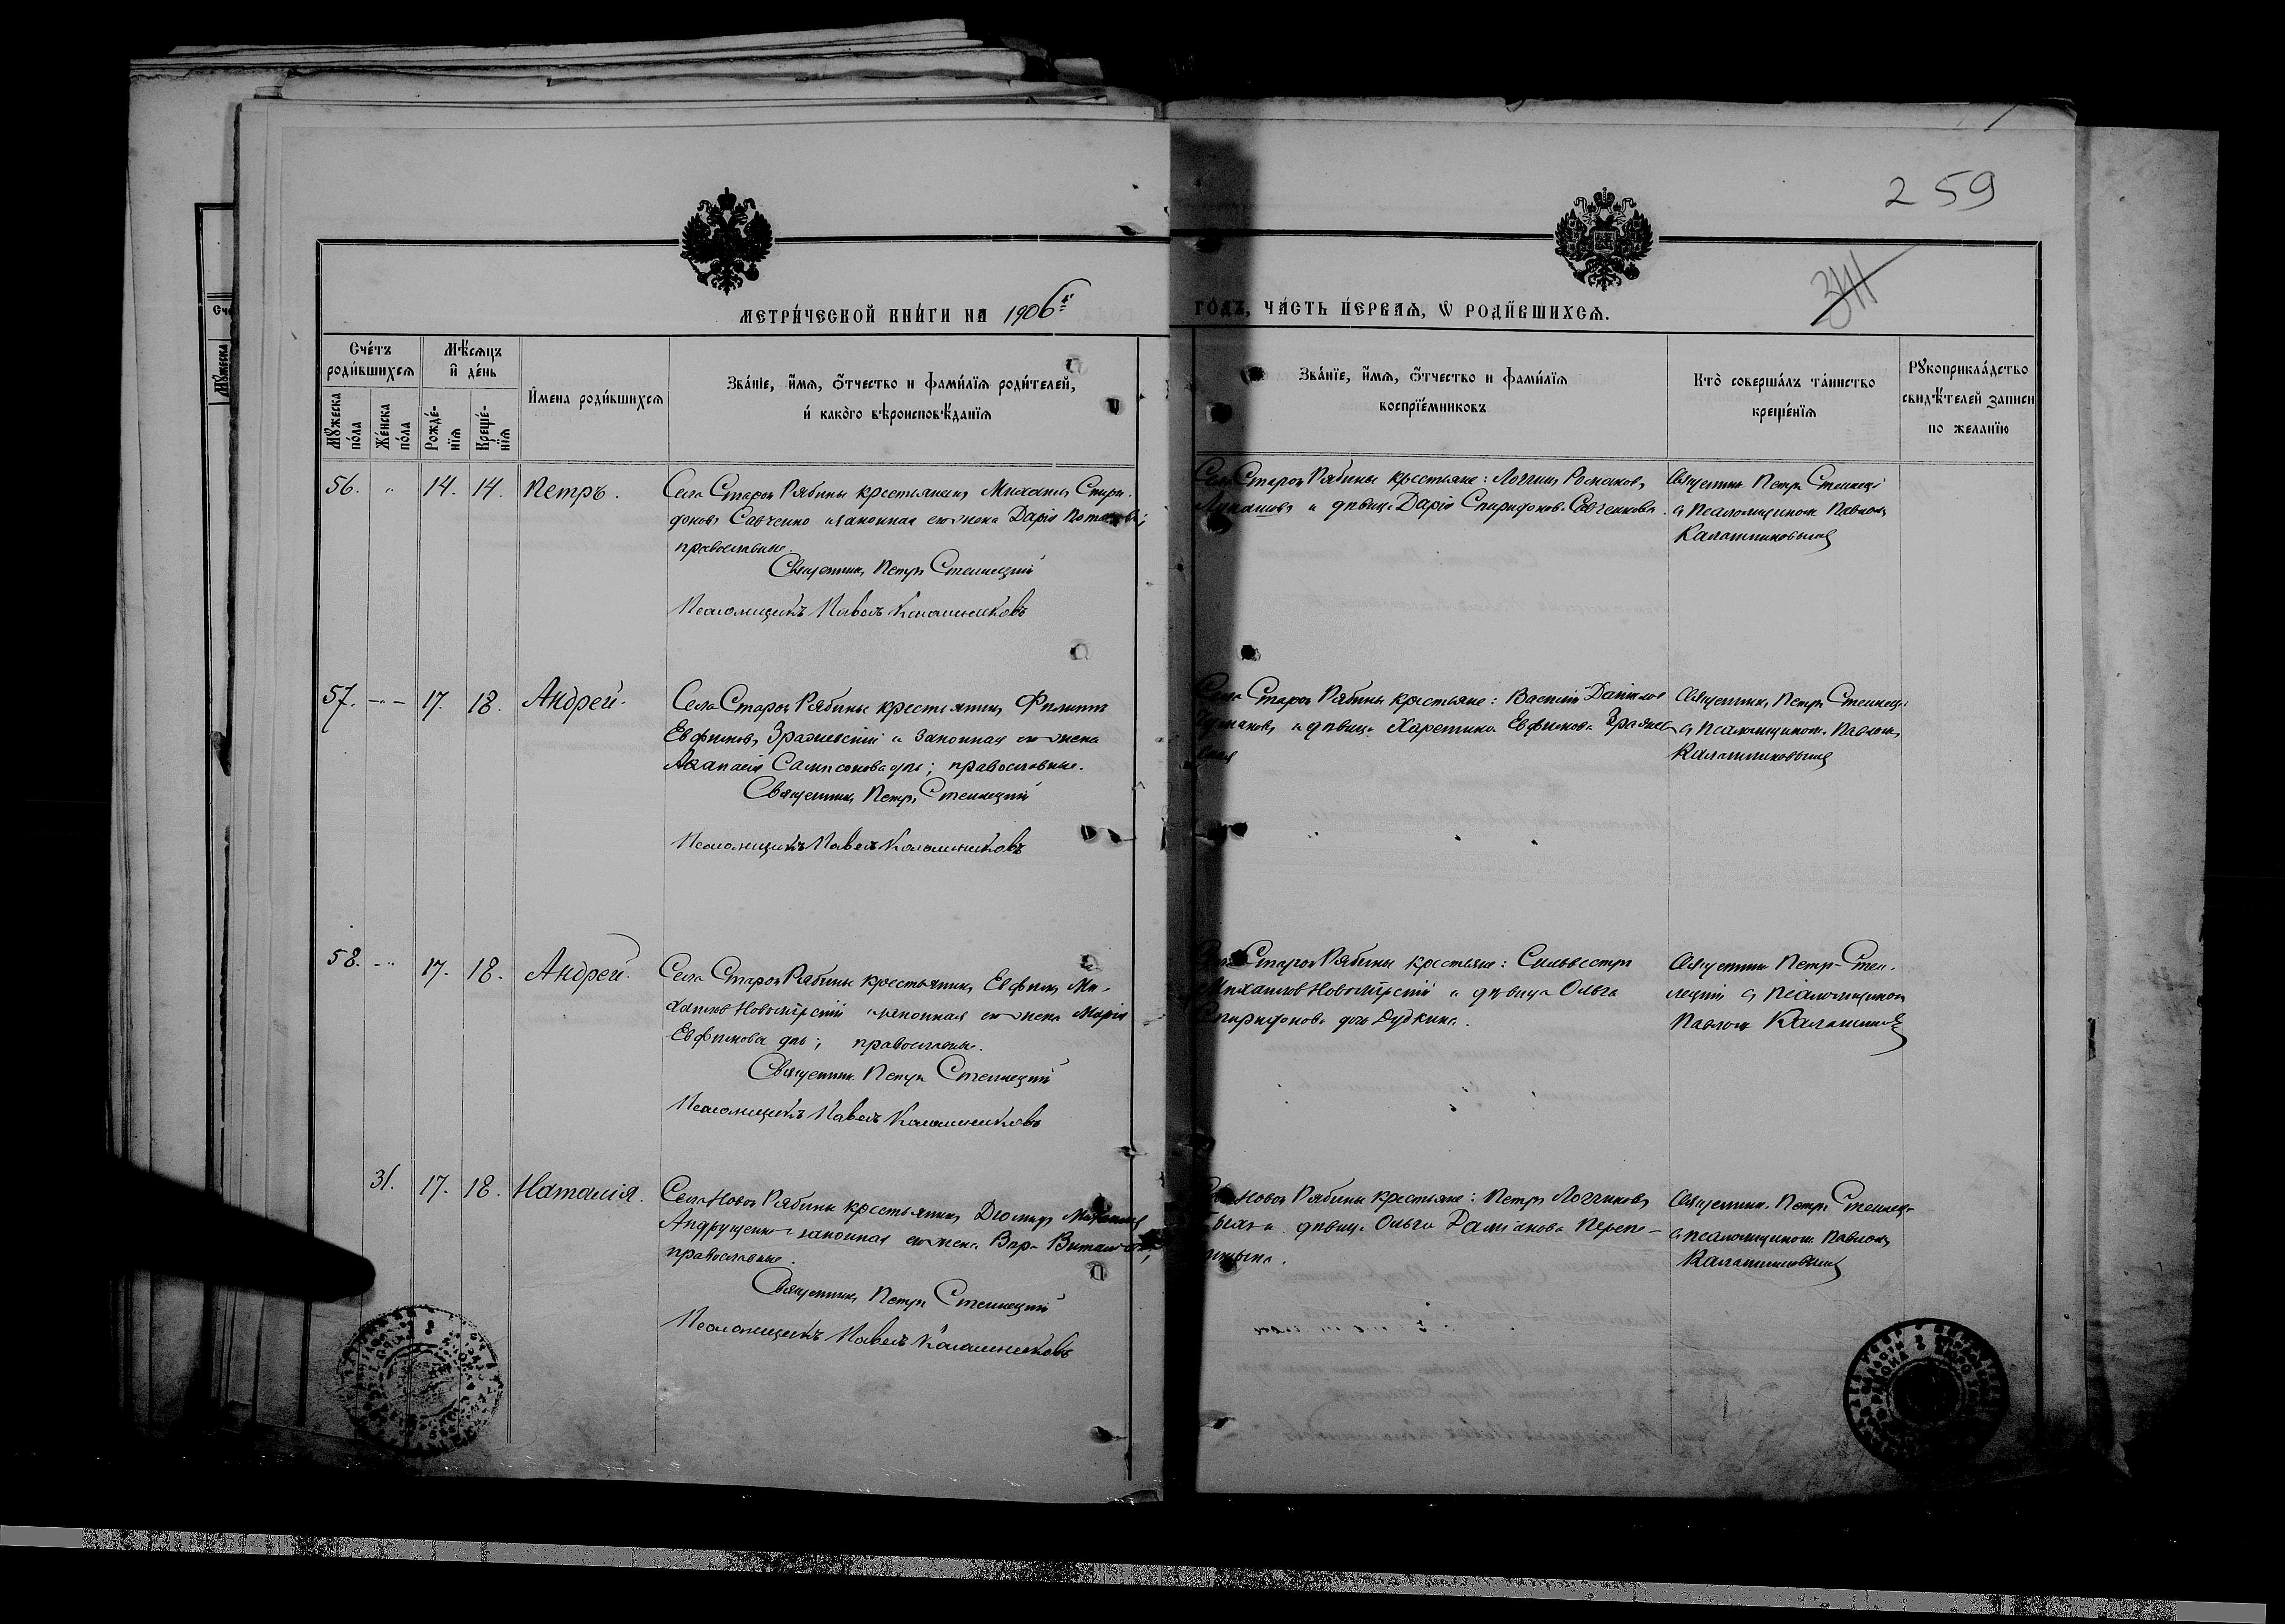 259
341
МЕТРИЧЕСКОЙ КНИГИ НА 1906й
ГОДЪ, ЧАСТЬ ПЕРВАЯ, Ѡ РОДИВШИХСЯ.
Счетъ родившихся
Мужеска пола
Женска пола
Мѣсяцъ и день
Рожденїя
Крещенїя
Имена родившихся
Званїе, имя, отчество и фамилїя родителей,
и какого вѣроисповѣданїя
Званїе, имя, отчество и фамилїя
воспрїемниковъ
Кто совершалъ таинство
крещенїя
Рукоприкладство
свидѣтелей записи
по желанїю
56. " 14. 14. Петръ.
Села Старой Рябины крестьянинъ Михаилъ Спири-
доновъ Савченко и законная его жена Дарія
православные.
Священникъ Петръ Стеллецкий
Псаломщикъ Павелъ Калашниковъ
Села Старой Рябины крестьяне: Логгинъ Романовъ
и дѣвица Дарія Спиридонова Савченкова.
Священникъ Петръ Стеллецкій
съ псаломщикомъ Павломъ
Калашниковымъ
57. -"- 17. 18. Андрей.
Села Старой Рябины крестьянинъ Филиппъ
Евфимовъ Зражевскій и законная его жена
Сампсонова дочь; православные.
Священникъ Петръ Стеллецкий
Псаломщикъ Павелъ Калашниковъ
Села Старой Рябины крестьяне: Василій Даніилов
и дѣвица Харитина Евфимова Зражев
ская
Священникъ Петръ Стеллецкій
съ псаломщикомъ Павломъ
Калашниковымъ
58. -"- 17. 18. Андрей.
Села Старой Рябины крестьянинъ Евфимъ Ми-
хаилов Новомірскій и законная его жена Марія
Евфимова дочь; православные.
Священникъ Петръ Стеллецкий
Псаломщикъ Павелъ Калашниковъ
Села Старой Рябины крестьяне: Сильвестръ
Михаилов Новомірскій и дѣвица Ольга
Спиридонова дочь Дудкина.
Священникъ Петръ Стел-
лецкій съ псаломщикомъ
Павломъ Калашников
31. 17. 18. Наталія.
Села Новой Рябины крестьянинъ Діомидъ
Андрущенко и законная его жена
православные.
Священникъ Петръ Стеллецкий
Псаломщикъ Павелъ Калашниковъ
Села Новой Рябины крестьяне: Петръ Логгиновъ
и дѣвица Ольга Даміанова Переп-
Священникъ Петръ Стеллецк
съ псаломщикомъ Павломъ
Калашниковымъ